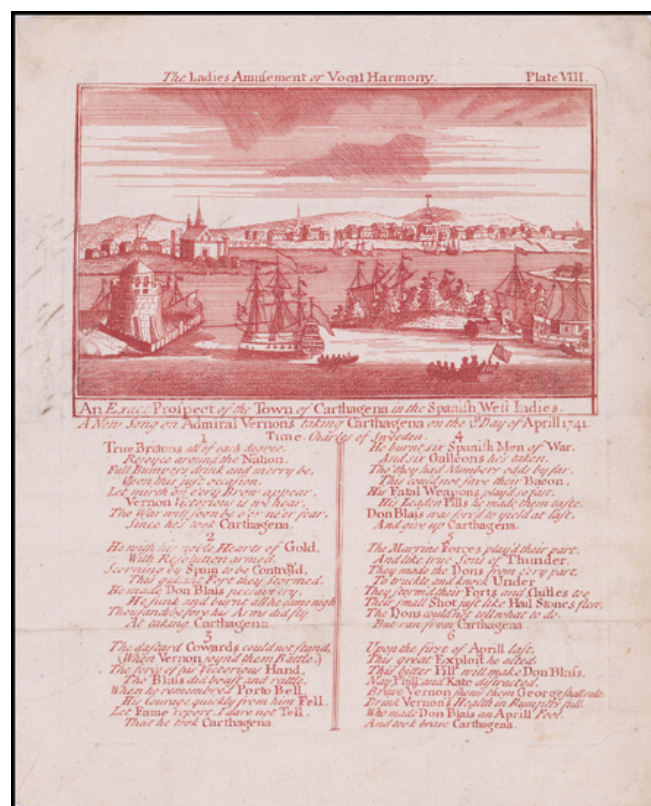 The Ladies Amusement or Vocal Harmony. Plate VIII.
An Exact Prospect of the Town of Carthagena in the Spanish West Indies.
A New Song on Admiral Vernons taking Carthagena on the 1st Day of April 1741.
Tune. Charles of Sweden.
1
True Britons all of each degree,
Rejoyce around the Nation,
Full Bumpers drink and merry be,
Upon this just occasion,
Let mirth on e'ery Brow appear,
Vernon Victorious is we hear,
The War will soon be o'er ne'er fear,
Since he's took Carthagena.
2
He with his noble Hearts of Gold,
With Resolution armed,
Scorning by Spain to be Control'd,
This gallant Fort they Stormed.
He made Don Blais peccavi cry,
He sunk and burnt all he came nigh
Thousands before his Arms did fly
At taking Carthagena.
3
The dastard Cowards could not stand,
(When Vernon joyn'd them Battle,)
The force of his Victorious Hand,
Tho' Blais did boast and rattle,
When he remembred Porto Bell,
His Courage quickly from him Fell,
Let Fame report, I dare not Tell,
That he took Carthagena.
4
He burnt six Spanish Men of War,
And six Galleons hes taken,
Tho' they had Numbers odds by far,
This could not save their Bacon,
His Fatal Weapons play'd so fast,
His Leaden Pills he made them taste,
Don Blais was forc'd to yield at last,
And give up Carthagena.
5
The Marrine Forces play'd their part,
And like true Sons of Thunder,
They made the Dons from e'ery part,
To truckle and knock Under
They storm'd their Forts and Castles too
Their small Shot just like Hail Stones flew,
The Dons could not tell what to do,
But ran from Carthagena.
6
Upon the first of Aprill last,
This great Exploit he acted,
This bitter Pill will make Don Blass,
Nay Phill and Kate distracted,
Brave Vernon shews them George shall rule,
Drink Vernon's Health in Bumpers full,
Who made Don Blais an Aprill Fool,
And took brave Carthagena.